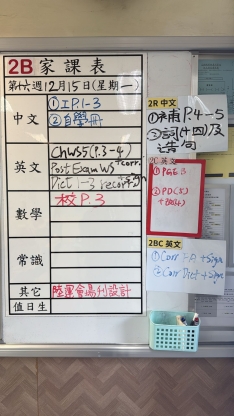 2B 家課表
第十六週12月15日(星期一)
中文
①工P.1-3
②自學冊
英文
Ch WS5(P.3-4)
Post Exam WS +corr.
Dict 1-3 recorr+sign
數學
校P.3
常識
其它
陸運會場刊設計
值日生
2R 中文
①補P.4-5
②詞(十四)及
造句
2C 英文
① PGE 3
② PD(2)
2BC 英文
① Corr +Sign
② Corr Dict + Sign